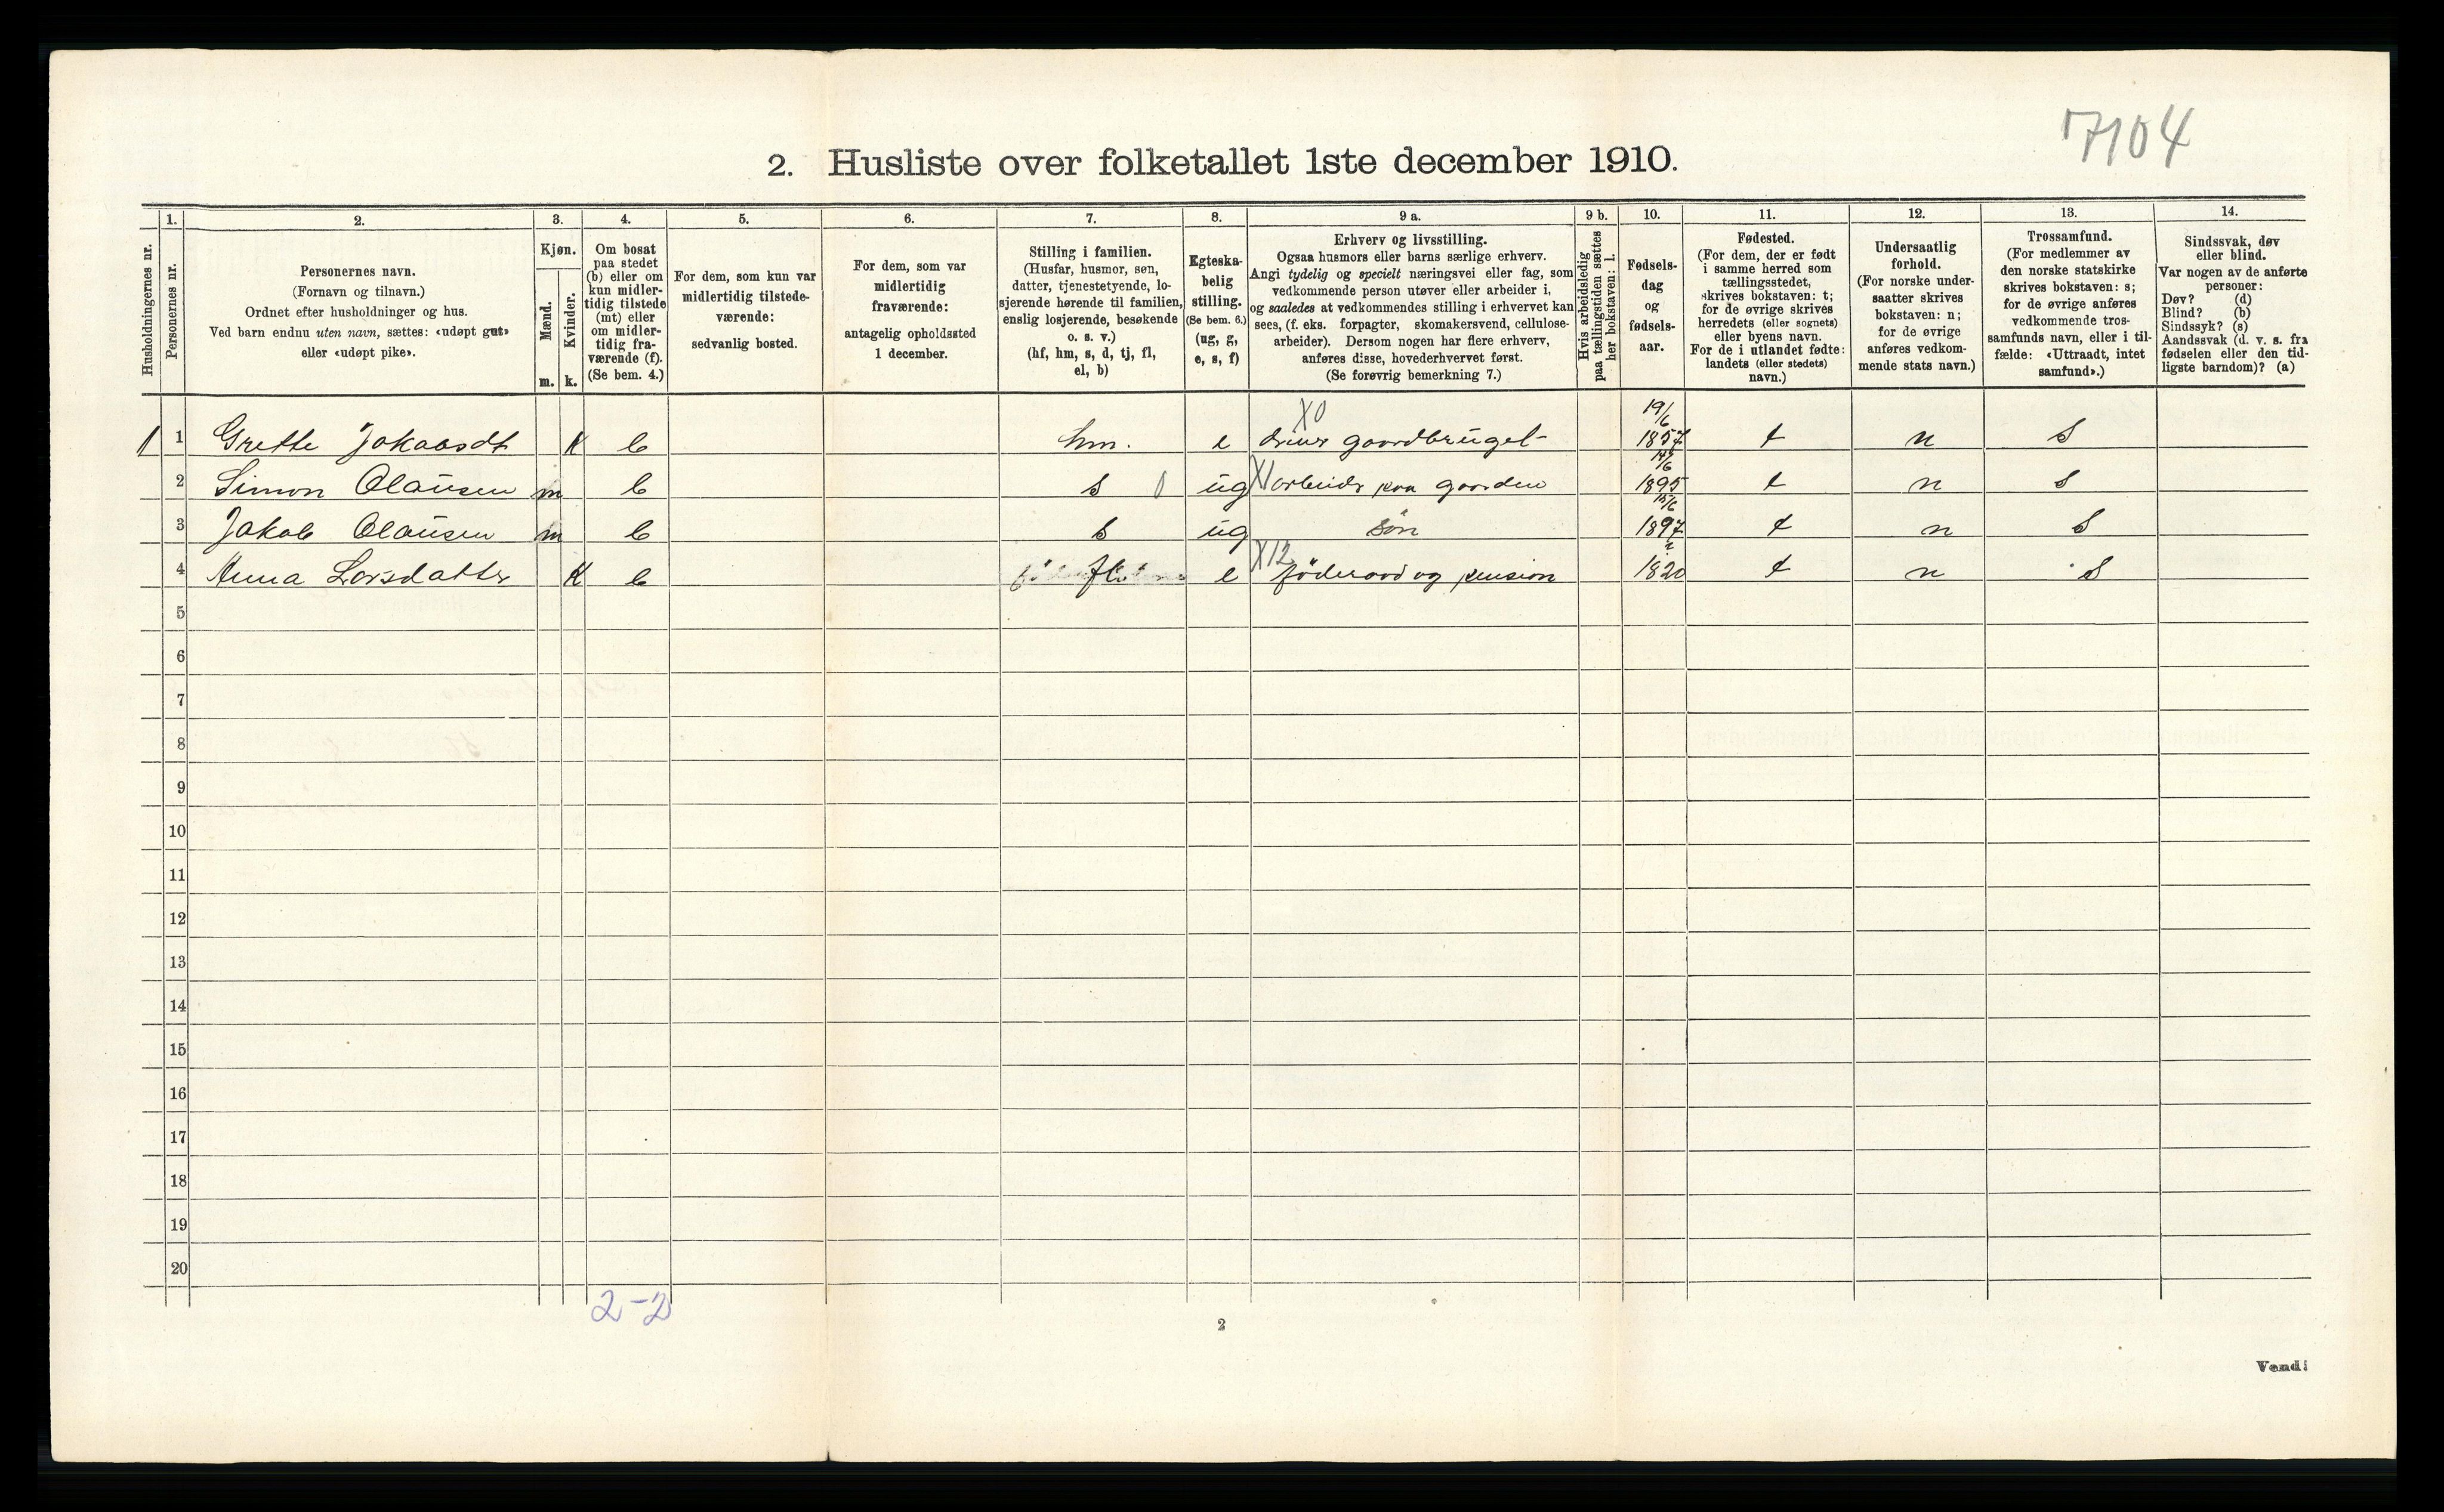 7104
2. Husliste over folketallet 1ste december 1910.
Husholdningernes nr.
1. Personernes nr.
2. Personernes navn. (Fornavn og tilnavn.) Ordnet efter husholdninger og hus. Ved barn endnu uten navn, sættes: «udøpt gut» eller «udøpt pike».
3. Kjøn. Mænd. m. Kvinder. k.
4. Om bosat paa stedet (b) eller om kun midler- tidig tilstede (mt) eller om midler- tidig fra- værende (f). (Se bem. 4.)
5. For dem, som kun var midlertidig tilstede- værende: sedvanlig bosted.
6. For dem, som var midlertidig fraværende: antagelig opholdssted 1 december.
7. Stilling i familien. (Husfar, husmor, søn, datter, tjenestetyende, lo- sjerende hørende til familien, enslig losjerende, besøkende o. s. v.) (hf, hm, s, d, tj, fl, el, b)
8. Egteska- belig stilling. (Se bem. 6.) (ug, g, e, s, f)
9 a. Erhverv og livsstilling. Ogsaa husmors eller barns særlige erhverv. Angi tydelig og specielt næringsvei eller fag, som vedkommende person utøver eller arbeider i, og saaledes at vedkommendes stilling i erhvervet kan sees, (f. eks. forpagter, skomakersvend, cellulose- arbeider). Dersom nogen har flere erhverv, anføres disse, hovederhvervet først. (Se forøvrig bemerkning 7.)
9 b. Hvis arbeidsledig paa tællingstiden sættes her bokstaven: l.
10. Fødsels- dag og fødsels- aar.
11. Fødested. (For dem, der er født i samme herred som tællingsstedet, skrives bokstaven: t; for de øvrige skrives herredets (eller sognets) eller byens navn. For de i utlandet fødte: landets (eller stedets) navn.)
12. Undersaatlig forhold. (For norske under- saatter skrives bokstaven: n; for de øvrige anføres vedkom- mende stats navn.)
13. Trossamfund. (For medlemmer av den norske statskirke skrives bokstaven: s; for de øvrige anføres vedkommende tros- samfunds navn, eller i til- fælde: «Uttraadt, intet samfund».)
14. Sindssvak, døv eller blind. Var nogen av de anførte personer: Døv? (d) Blind? (b) Sindssyk? (s) Aandssvak (d. v. s. fra fødselen eller den tid- ligste barndom)? (a)
1 1 Grethe K b hm. e X0 driver gaardbruget 19/6 1857 t n s
2 Simon Olausen m b s 0 ug X1 arbeider paa gaarden 1895 t n s
3 Jakob Olausen m b s ug søn 1897 t n s
4 Anna Larsdatter K b fl e X12 föderaad og pension 1820 t n s
5
6
7
8
9
10
11
12
13
14
15
16
17
18
19
20
2-2
2
Vend!